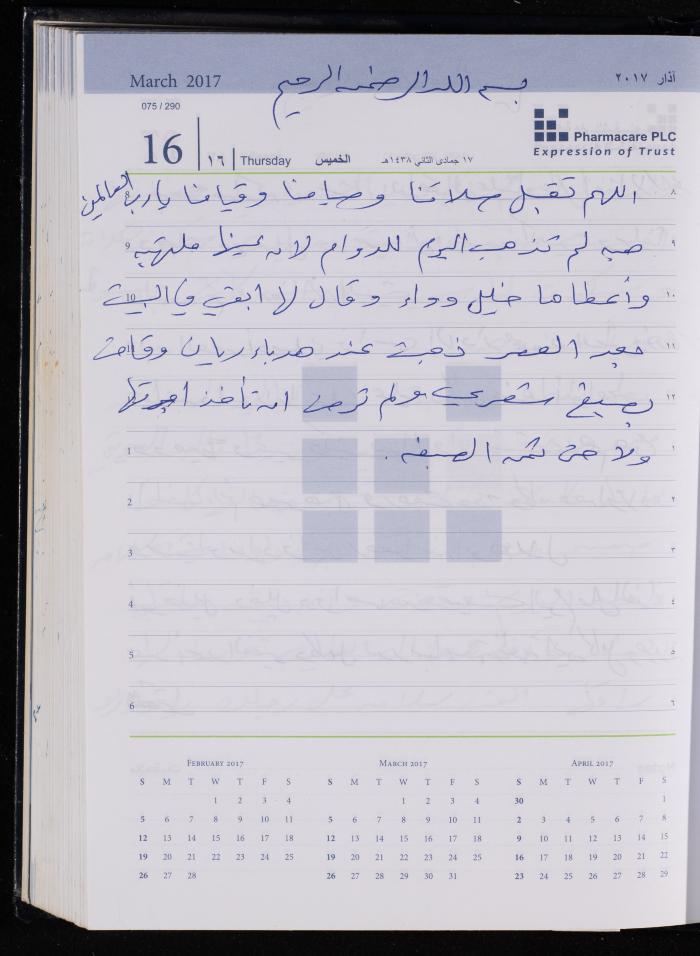 March 2017
بسم الله الرحمن الرحيم
آذار ٢٠١٧
075 / 290
16 | ١٦ | Thursday الخميس ١٧ جمادى الثاني ١٤٣٨هـ
Pharmacare PLC
Expression of Trust
اللهم تقبل صلاتنا وصيامنا وقيامنا يا رب العالمين ٨
هبه لم تذهب اليوم للدوام لان عينها ملتهبه 9
وأعطاها خليل دواء وقال لها ابقي في البيت 10 ١٠
بعد العصر ذهبت عند هدباء ريان وقامت 11 ١١
بصبغ شعري ولم ترض ان تأخذ اجرتها ١٢
ولا حتى ثمن الصبغه . 1 ١
2 ٢
3 ٣
4 ٤
5 ٥
6 ٦
February 2017
S M T W T F S
1 2 3 4
5 6 7 8 9 10 11
12 13 14 15 16 17 18
19 20 21 22 23 24 25
26 27 28
March 2017
S M T W T F S
1 2 3 4
5 6 7 8 9 10 11
12 13 14 15 16 17 18
19 20 21 22 23 24 25
26 27 28 29 30 31
April 2017
S M T W T F S
30 1
2 3 4 5 6 7 8
9 10 11 12 13 14 15
16 17 18 19 20 21 22
23 24 25 26 27 28 29